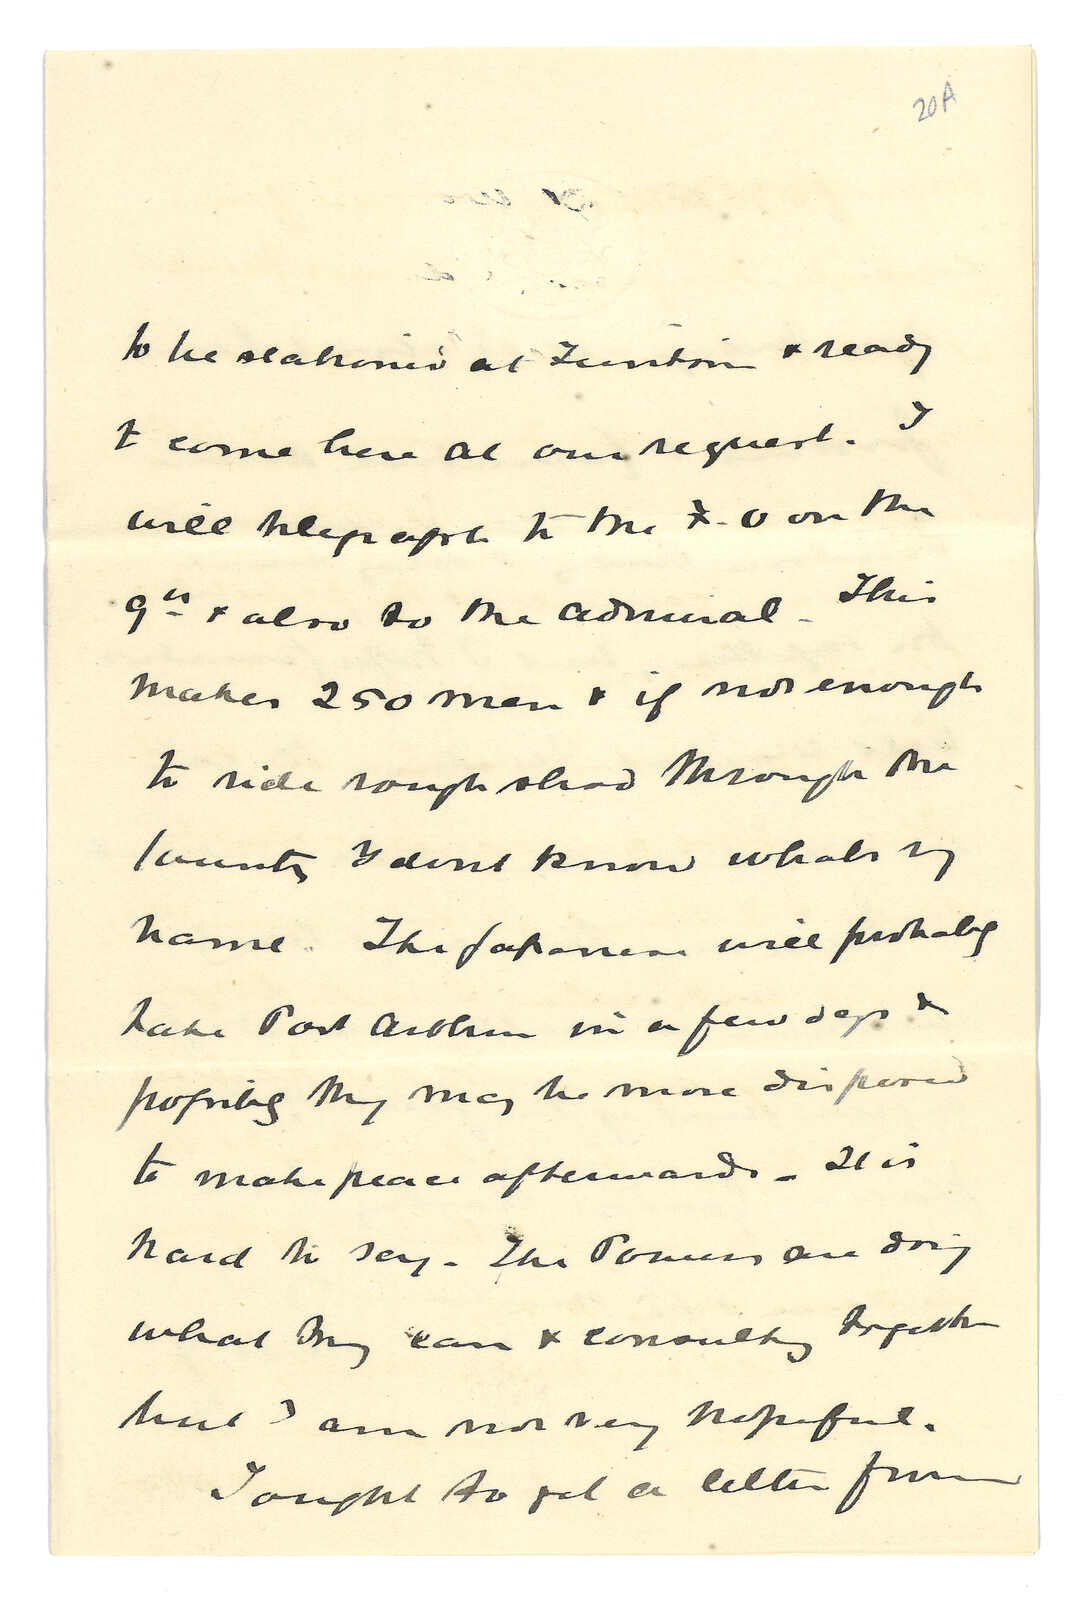 20A
to be stationed at Tientsin & ready
to come here at our request. I
will telegraph to the F.O on the
9th & also to the Admiral. This
makes 250 men & if not enough
to ride rough shod through the
country I dont know whats my
name. The Japanese will probably
take Port Arthur in a few days &
possibly they may be more disposed
to make peace afterwards - It is
hard to say. The Powers are doing
what they can & consulting together
but I am not very hopeful.
I ought to get a letter from